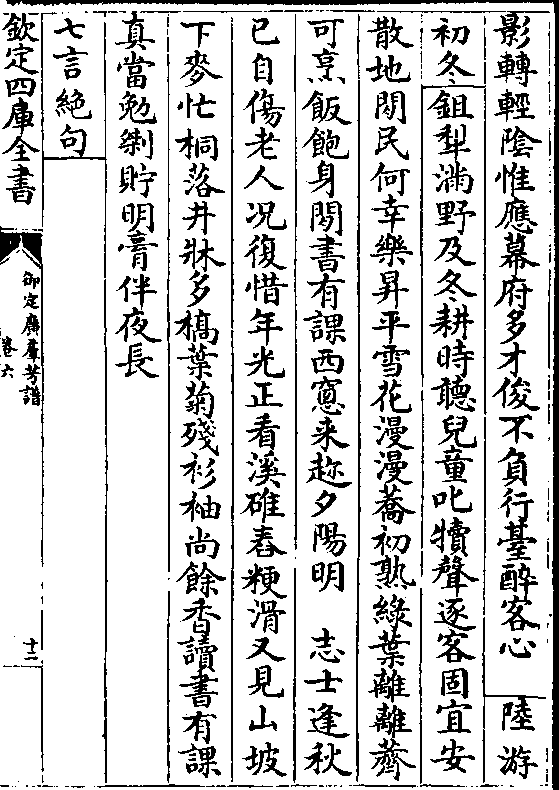 影轉輕陰惟應幕府多才俊不負行臺醉客心　陸游
初冬鉏犁滿野及冬耕時聽兒童叱犢聲逐客固宜安
散地閒民何幸樂昇平雪花漫漫蕎初熟綠葉離離薺
可烹飯飽身閒書有課西窓来趂夕陽明　志士逢秋
已自傷老人况復惜年光正看溪碓舂粳滑又見山坡
下麥忙桐落井牀多槁葉菊殘衫袖尚餘香讀書有課
真當勉剩貯明膏伴夜長
七言絶句
欽定四庫全書
御定廣羣芳譜
卷六
十二